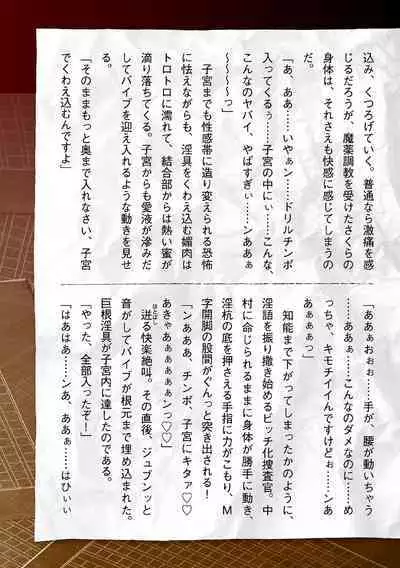 込み、くつろげていく。普通なら激痛を感
じるだろうが、魔薬調教を受けたさくらの
身体は、それさえも快感に感じてしまうの
だ。
「あ、ああ……いやぁン……ドリルチンポ
入ってくるぅ……子宮の中にぃ……こんな、
こんなのヤバイ、やばすぎぃ……ンああぁ
～～～～っ」
　子宮までも性感帯に造り変えられる恐怖
に怯えながらも、淫具をくわえ込む媚肉は
トロトロに濡れて、結合部からは熱い蜜が
滴り落ちてくる。子宮からも愛液が滲みだ
してバイブを迎え入れるような動きを見せ
る。
「そのままもっと奥まで入れなさい、子宮
でくわえ込むんですよ」
「ああぉぉぉ……手が、腰が動いちゃう
……ああ、あぁ……こんなのダメなのに……め
っちゃ、キモチイイんですけどぉ……ンあ
あぁぁぁっ」
　知能まで下がってしまったかのように、
淫語を振り撒き始めるビッチ化捜査官。中
村に命じられるままに身体が勝手に動き、
淫杭の底を押さえる手指に力がこもり、M
字開脚の股間がぐんっと突き出される！
「ンあああ、チンポ、子宮にキタァ♡♡
あきゃあぁぁぁぁぁンっ♡♡」
　迸る快楽絶叫。その直後、ジュブンッと
音がしてバイブが根元まで埋め込まれた。
巨根淫具が子宮内に達したのである。
「やった、全部入ったぞ！」
「はあはあ……ンあ、ああぁ……はひぃぃ